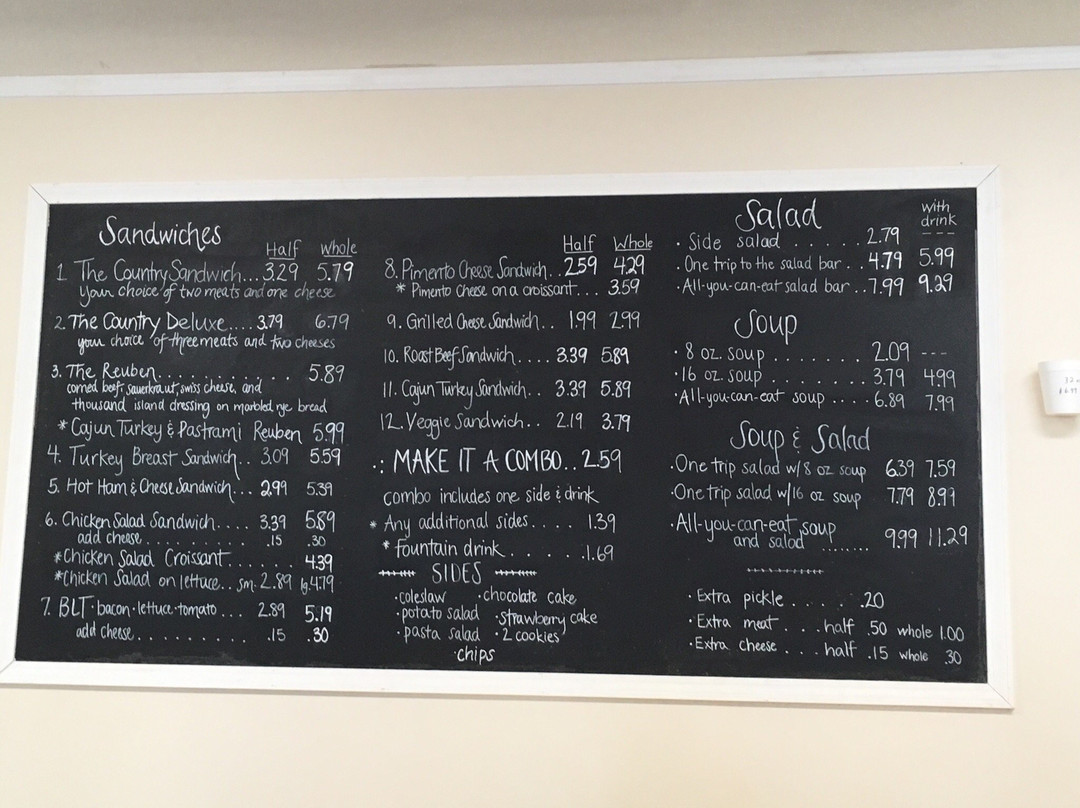 Sandwiches
Half Whole
1. The Country Sandwich... 3.29 5.79
your choice of two meats and one cheese
2. The Country Deluxe.... 3.79 6.79
your choice of three meats and two cheeses
3. The Reuben........... 5.89
corned beef, sauerkraut, swiss cheese, and
thousand island dressing on marbled rye bread
* Cajun Turkey & Pastrami Reuben 5.99
4. Turkey Breast Sandwich.. 3.09 5.59
5. Hot Ham & Cheese Sandwich... 2.99 5.39
6. Chicken Salad Sandwich.... 3.39 5.89
add cheese.......... .15 .30
*Chicken Salad Croissant...... 4.39
*Chicken Salad on lettuce.. sm. 2.89 lg. 4.79
7. BLT·bacon·lettuce·tomato... 2.89 5.19
add cheese......... .15 .30
Half Whole
8. Pimento Cheese Sandwich.. 2.59 4.29
* Pimento Cheese on a croissant... 3.59
9. Grilled Cheese Sandwich.. 1.99 2.99
10. Roast Beef Sandwich.... 3.39 5.89
11. Cajun Turkey Sandwich.. 3.39 5.89
12. Veggie Sandwich.. 2.19 3.79
·: MAKE IT A COMBO.. 2.59
combo includes one side & drink
* Any additional sides.... 1.39
* fountain drink..... 1.69
SIDES
·coleslaw ·chocolate cake
·potato salad ·strawberry cake
·pasta salad ·2 cookies
·chips
Salad
with drink
· Side salad ...... 2.79 ---
· One trip to the salad bar.. 4.79 5.99
· All-you-can-eat salad bar.. 7.99 9.29
Soup
· 8 oz. soup ........ 2.09 ---
· 16 oz. soup ........ 3.79 4.99
· All-you-can-eat soup .... 6.89 7.99
Soup & Salad
· One trip salad w/8 oz soup 6.39 7.59
· One trip salad w/16 oz soup 7.79 8.99
· All-you-can-eat soup
and salad ........ 9.99 11.29
· Extra pickle ..... .20
· Extra meat ... half .50 whole 1.00
· Extra cheese ... half .15 whole .30